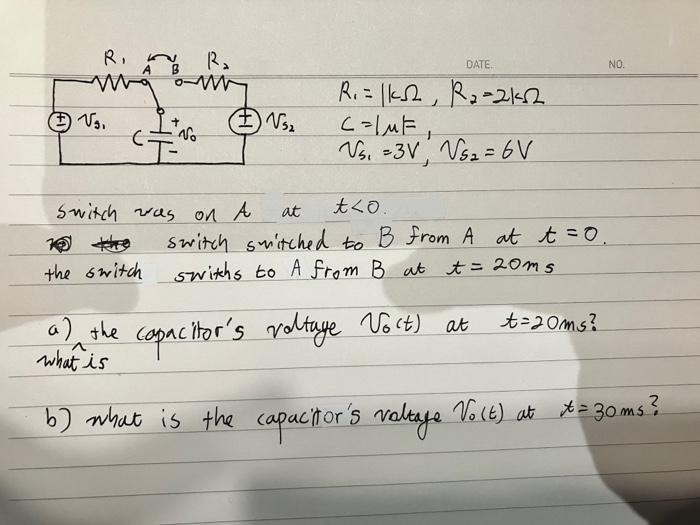 DATE. NO.
R₁ A B R₂
R₁ = 1kΩ , R₂ = 2kΩ
+ Vs₁ C + Vo - + Vs₂ C = 1μF ,
Vs₁ = 3V , Vs₂ = 6V
switch was on A at t<0.
switch switched to B from A at t = 0.
the switch swiths to A from B at t = 20ms
a) the capacitor's voltage Vo(t) at t=20ms?
what is
b) what is the capacitor's voltage Vo(t) at t=30ms?